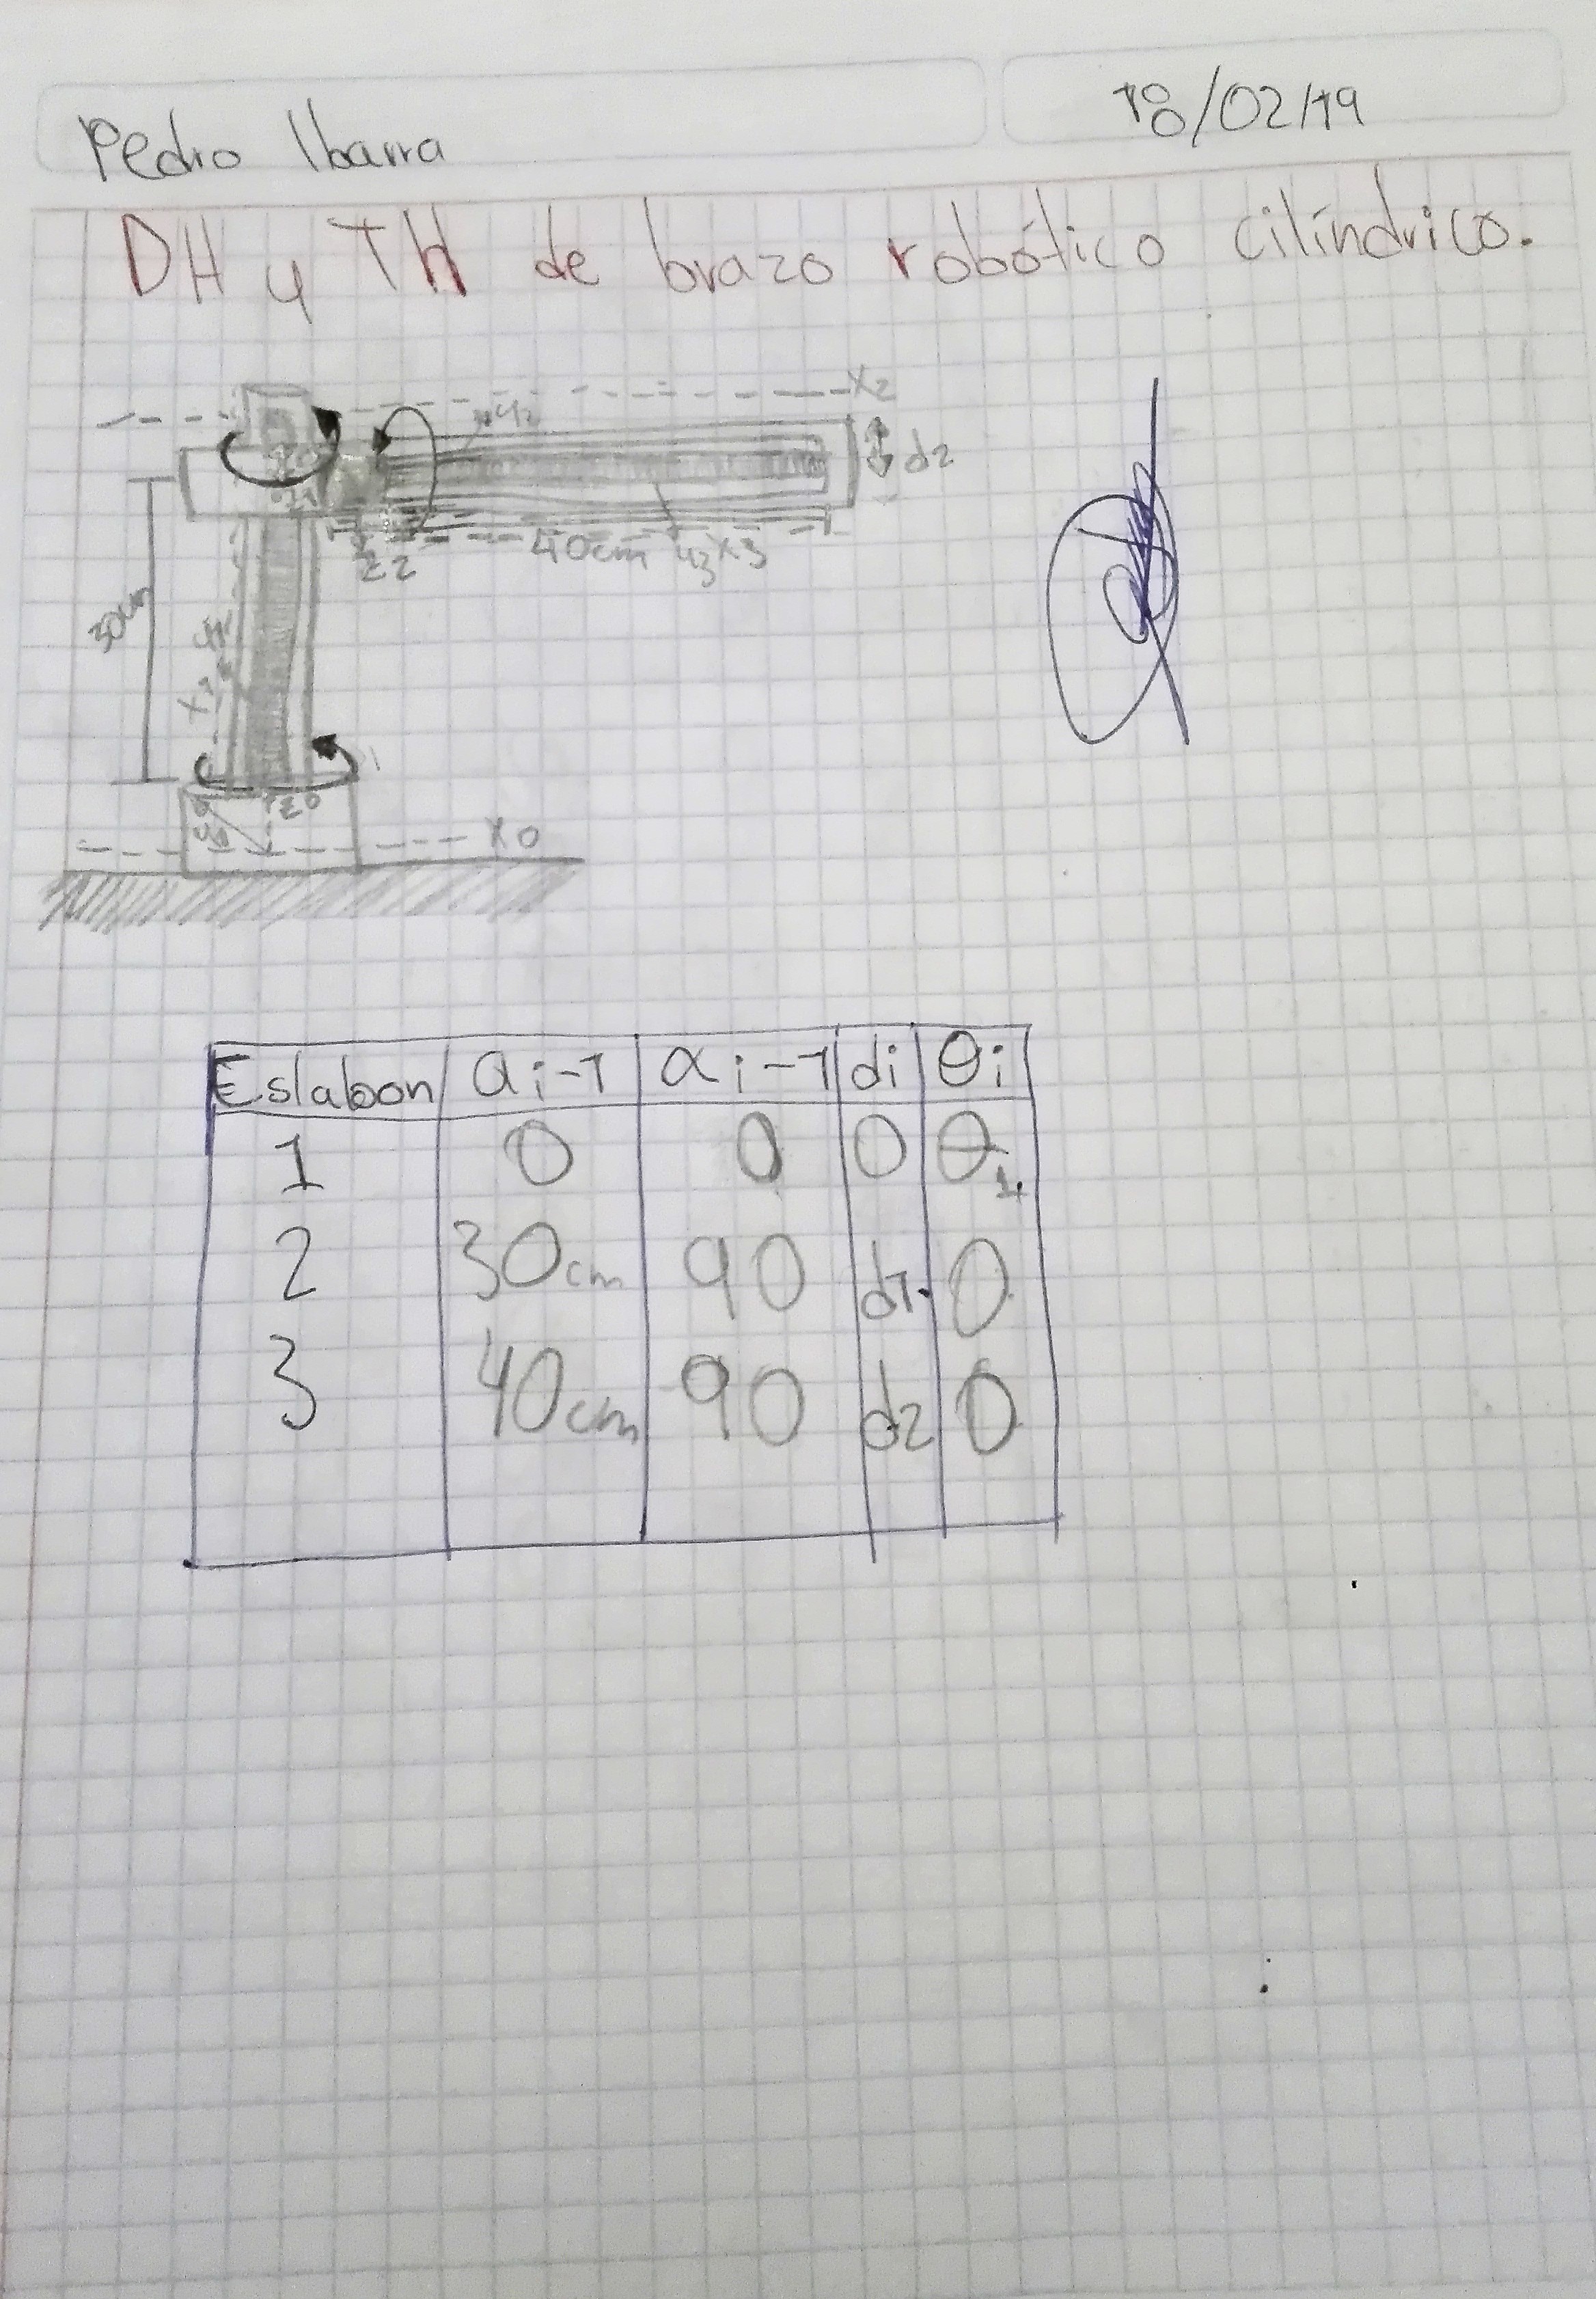 Pedro Ibarra
18/02/19
DH y TH de brazo robótico cilíndrico.
X2
Y2
d2
40cm Y3 X3
Z2
30cm
Z0
Y0
X0
Eslabon ai-1 αi-1 di θi
1 0 0 0 θ1
2 30cm 90 d1 0
3 40cm 90 d2 0